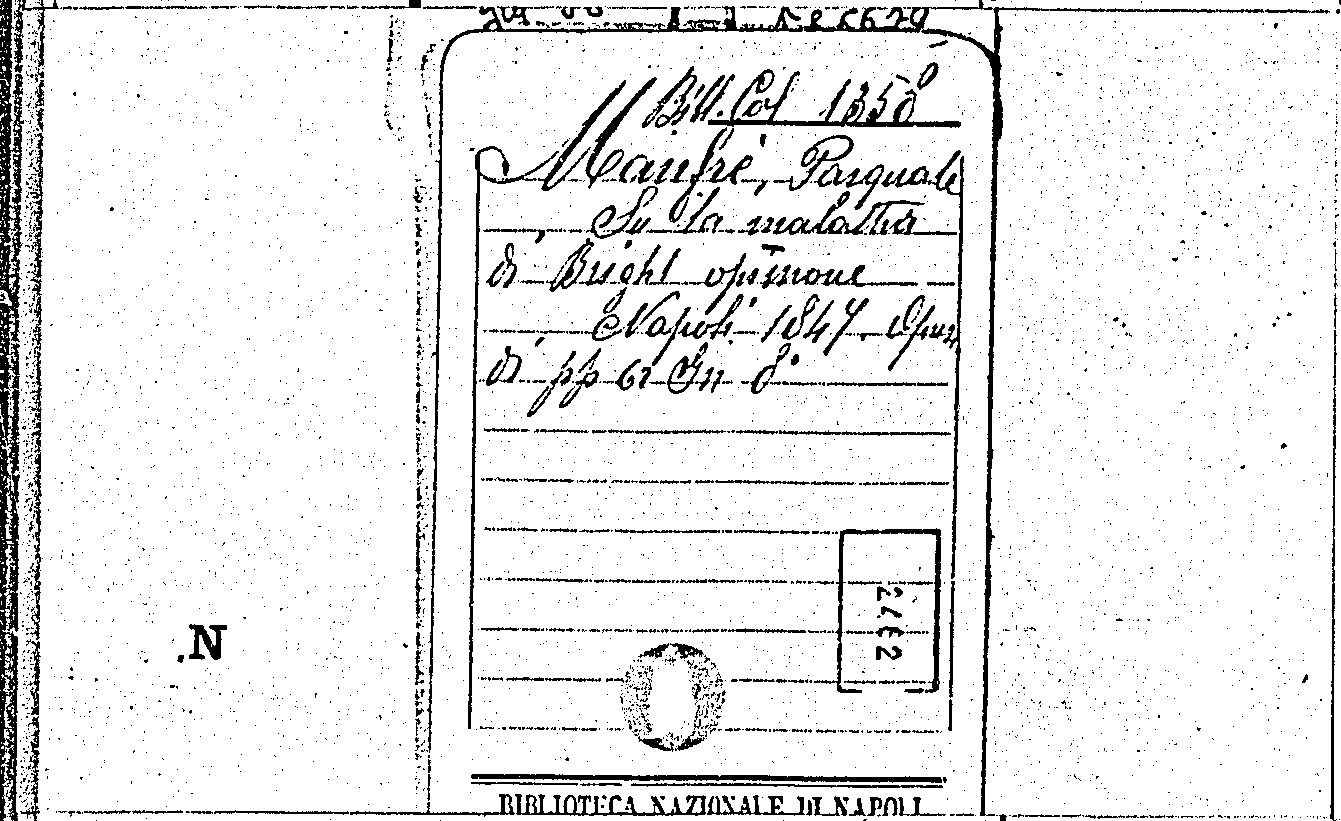 Bill. Col 1358
Manfrè, Pasquale
Su la malattia
di Bright opinione
Napoli 1847. Opus
di pp 61 In 8°
2462
.N
BIBLIOTECA NAZIONALE DI NAPOLI